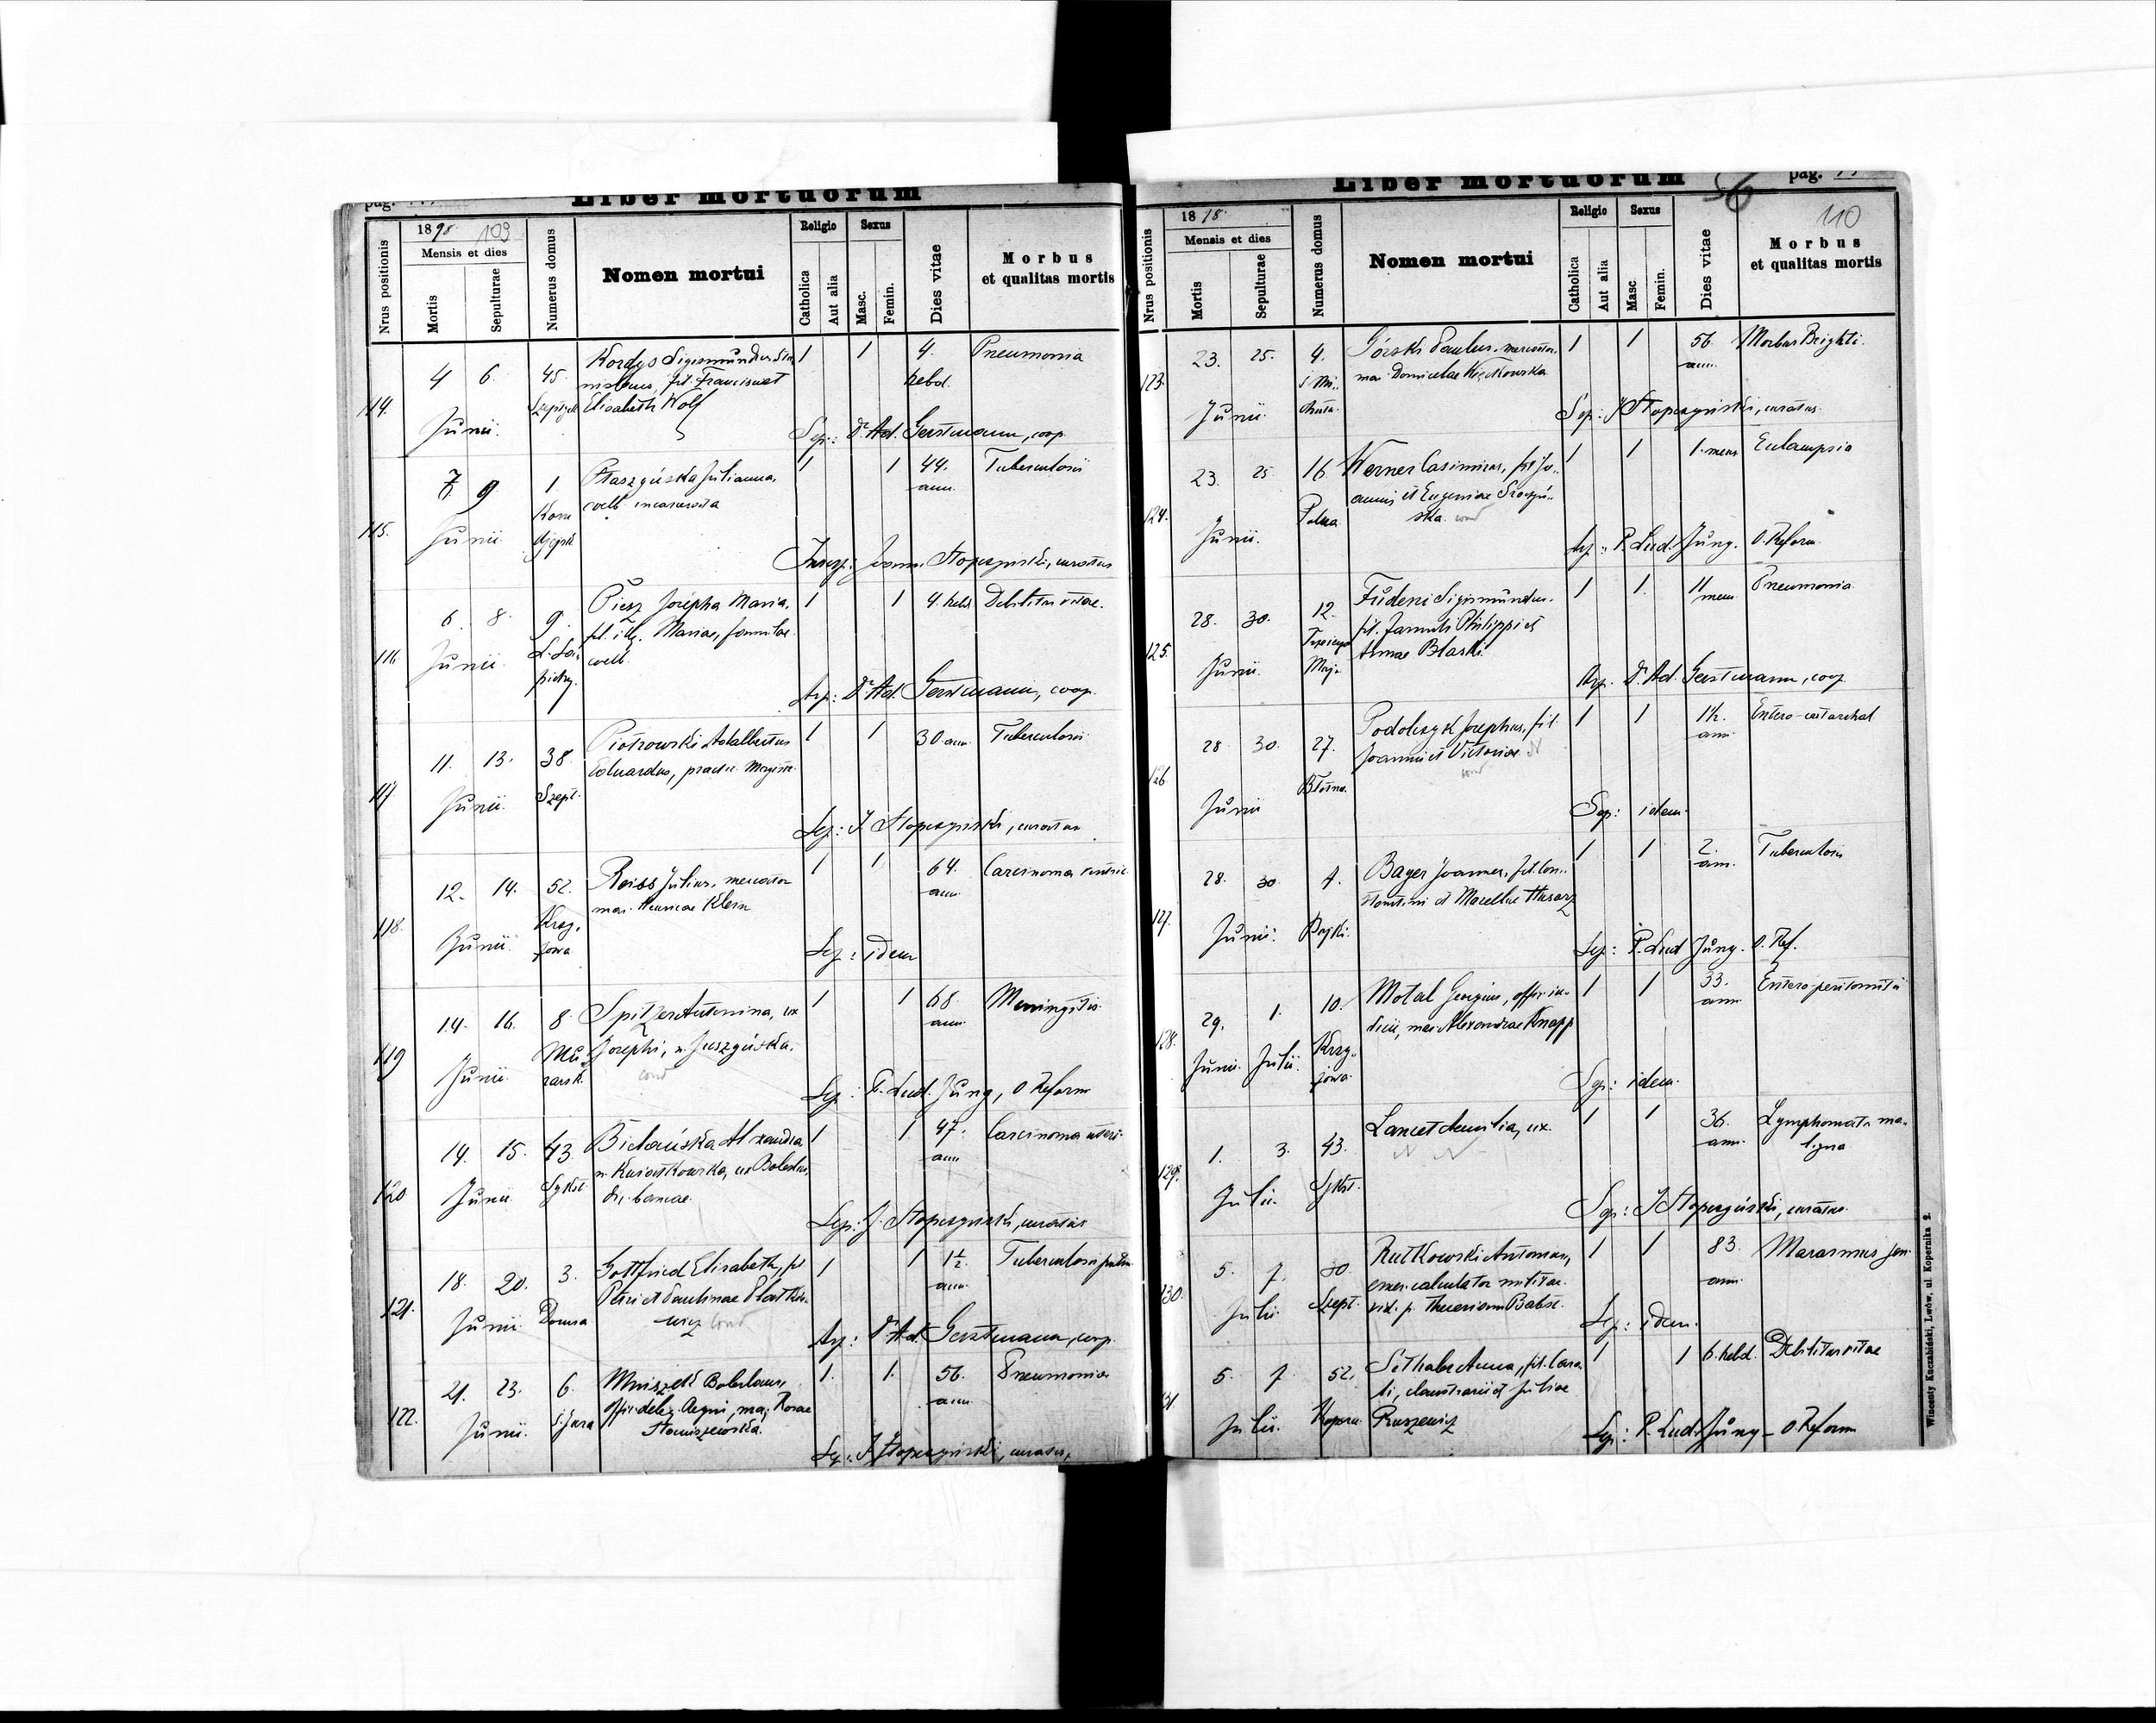 pag.
Liber mortuorum
1898 109
Nrus positionis
Mensis et dies
Mortis
Sepulturae
Numerus domus
Nomen mortui
Religio
Catholica
Aut alia
Sexus
Masc.
Femin.
Dies vitae
Morbus
et qualitas mortis
114. 4 6. Junii. 45.
Kordys Sigismundus Sta
nislaus, fil. Francisci et
Elisabeth Wolf
1 1 4. hebd. Pneumonia
Sep.: Dr. Ad. Gerstmann, coop.
115. 7 9 Junii 1
Ptaszyńska Julianna,
coelb. incarcerata
1 1 44. ann. Tuberculosis
Joann. Stopczyński, curatus
116 6. 8. Junii. 9.
Piesz Josepha Maria,
fil. illg. Mariae, famulae
coelb.
1 1 4. hebd. Debilitas vitae.
Asp: Dr. Ad. Gerstmann, coop.
117 11. 13. Junii. 38. Szept.
Piotrowski Adalbertus
Eduardus, pract. Magistr.
1 1 30. ann. Tuberculosis
Sep: J. Stopczyński, curatus
118. 12. 14. Junii. 52. Krzy.
żowa
Reiss Julius, mercator
mar. Henricae Klein
1 1 64. ann. Carcinoma ventric.
Sep: idem
119 14. 16. Junii. 8. Mu
rarsk.
Spitzer Antonina, ux
Josephi, n. Juszyńska.
cond
1 1 68 ann. Meningitis
Sep: P. Lud. Jung, O Reform
120 14. 15. Junii 43. Sykst.
Bielańska Alexandra
n. Kwiatkowska, ux Boleslai,
1 1 47. ann Carcinoma uteri.
Sep: J. Stopczyński, curatus
121. 18. 20. Junii. 3. Domsa
Gottfried Elisabeth, fil
Petri et Paulinae Płatkie
wicz cond
1 1 1½ ann. Tuberculosis pulm.
Asp: Dr. Ad. Gerstmann, coop.
122. 21. 23. Junii. 6. S. Jura
Mniszek Boleslaus,
mar. Rosae
Staniszewska.
1. 1. 56. ann. Pneumonia
Sep: J. Stopczyński, curatus,
Liber mortuorum
56
pag.
1898 110
Nrus positionis
Mensis et dies
Mortis
Sepulturae
Numerus domus
Nomen mortui
Religio
Catholica
Aut alia
Sexus
Masc
Femin.
Dies vitae
Morbus
et qualitas mortis
123. 23. 25. Junii. 4.
Górski Paulus, mercator,
mar. Domicelae
1 1 56. ann. Morbus Brighti.
Sep: J Stopczyński, curatus.
124. 23. 25. Junii. 16
Werner Casimirus, fil Jo-
annis et Eugeniae
ska. cond
1 1 1. mens Eclampsia
Asp: P. Lud. Jung. O. Reform.
125. 28. 30. Junii 12.
Sigismundus,
fil. famuli Philippi et
Annae Blaski.
1 1. 11 mens Pneumonia
Asp. Dr. Ad. Gerstmann, coop.
126 28 30. Junii 27. Błotna.
Podolczyk Josephus, fil.
Joannis et Victoriae N
cond
1 1 1½. ann. Entero-catarrhal
Sep: idem.
127. 28. 30. Junii. 4. Bajki.
Bayer Joannes, fil. Con-
stantini et Marcellae Husarz
1 1 2. ann. Tuberculosis
Sep: P. Lud Jung. O. Ref.
128. 29. 1. Junii. Julii. 10. Krzy-
żowa
Motal Georgius,
mar. Alexandrae Knapp
1 1 33. ann. Entero-peritonitis
Sep: idem.
129. 1. 3. Julii. 43. Sykst.
Lancet Aemilia, ux.
N N
1 1 36. ann. Lymphomata ma-
ligna
Sep: J Stopczyński, curatus.
130. 5. 7. Julii. 30. Szept.
Rutkowski Antonius,
emer. calculator militar.
vid. p. Theresiam
1 1 83. ann. Marasmus sen.
Sep: idem.
131. 5. 7 Julii. 52. Kopern.
Anna, fil. Caro
li, claustrarii et Juliae
Ruszewicz
1 1 6. hebd. Debilitas vitae
Sep: P. Lud. Jung - O. Reform
Wincenty Kuczabiński, Lwów, ul. Kopernika 2.